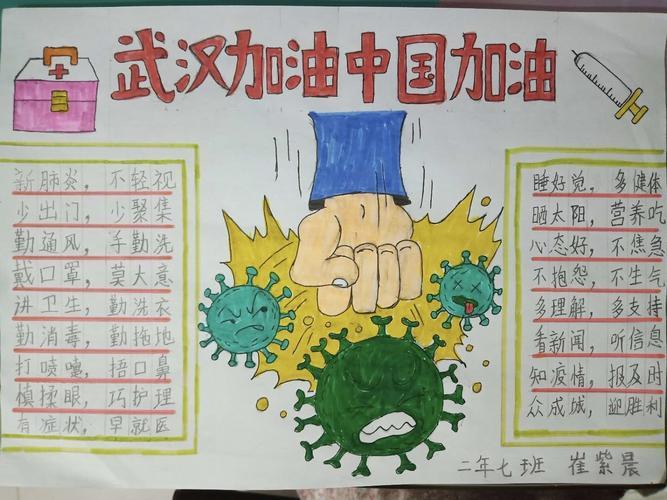 武汉加油中国加油
新肺炎，不轻视
少出门，少聚集
勤通风，手勤洗
戴口罩，莫大意
讲卫生，勤洗衣
勤消毒，勤拖地
打喷嚏，捂口鼻
慎揉眼，巧护理
有症状，早就医
睡好觉，多健体
晒太阳，营养吃
心态好，不焦急
不抱怨，不生气
多理解，多支持
看新闻，听信息
知疫情，报及时
众成城，迎胜利
二年七班 崔紫晨